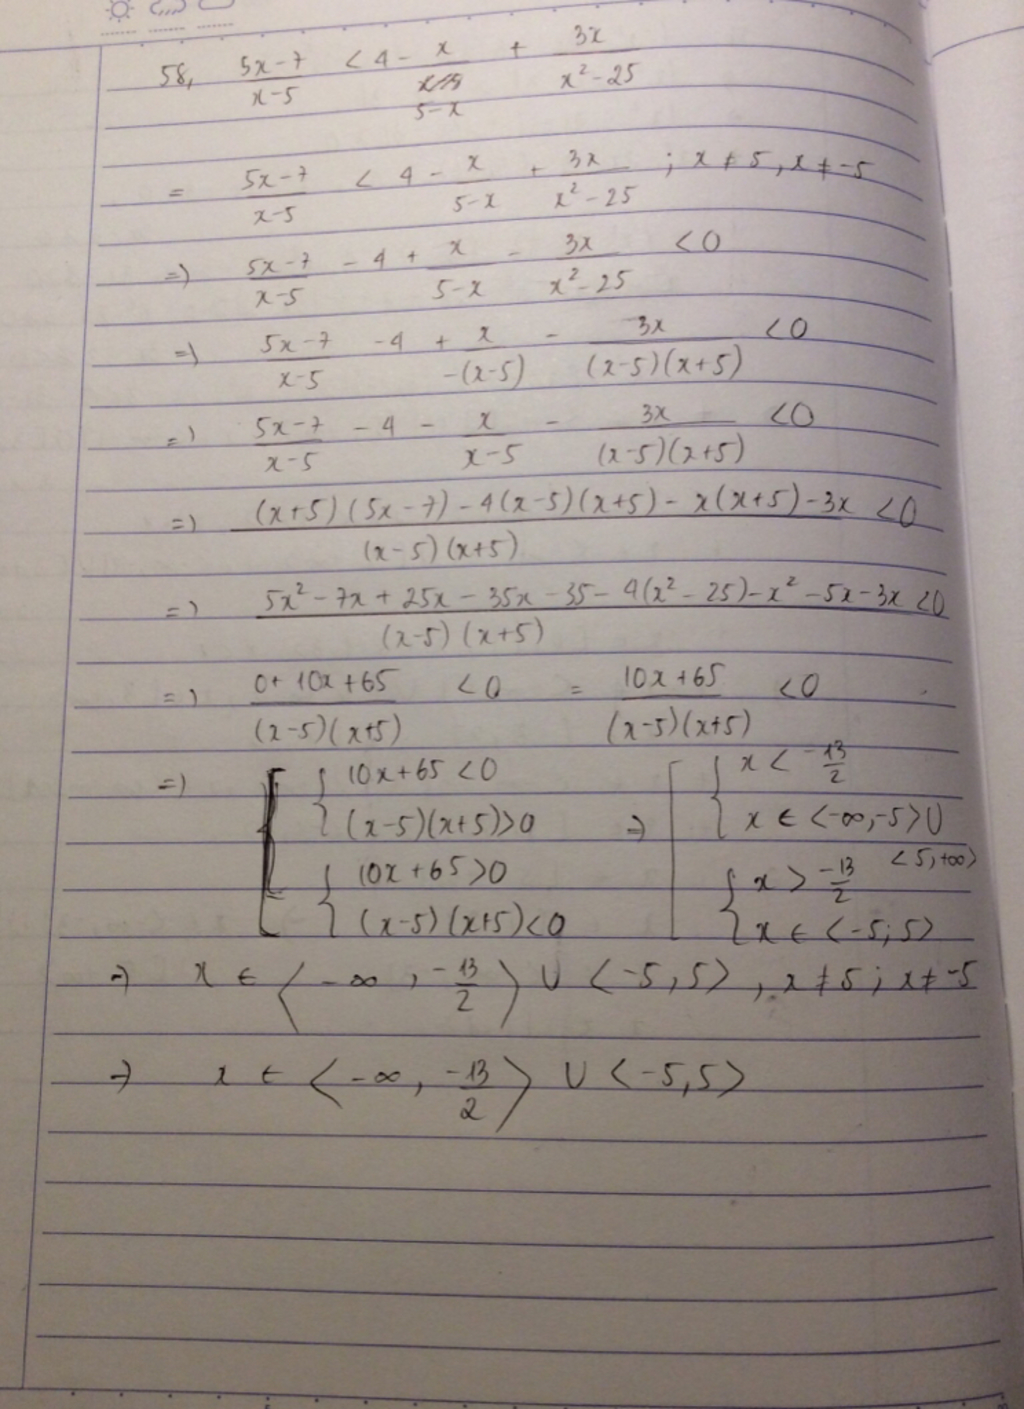 58, (5x-7)/(x-5) < 4 - x/(5-x) + 3x/(x²-25)
= (5x-7)/(x-5) < 4 - x/(5-x) + 3x/(x²-25) ; x ≠ 5, x ≠ -5
=) (5x-7)/(x-5) - 4 + x/(5-x) - 3x/(x²-25) < 0
=) (5x-7)/(x-5) - 4 + x/(-(x-5)) - 3x/((x-5)(x+5)) < 0
=) (5x-7)/(x-5) - 4 - x/(x-5) - 3x/((x-5)(x+5)) < 0
=) ((x+5)(5x-7) - 4(x-5)(x+5) - x(x+5) - 3x)/((x-5)(x+5)) < 0
=) (5x² - 7x + 25x - 35x - 35 - 4(x² - 25) - x² - 5x - 3x)/((x-5)(x+5)) < 0
=) (0 + 10x + 65)/((x-5)(x+5)) < 0 = (10x+65)/((x-5)(x+5)) < 0
=) [ { 10x+65 < 0 [ { x < -13/2
{ (x-5)(x+5) > 0 ⇒ { x ∈ <-∞,-5> ∪ <5,+∞>
{ 10x+65 > 0 { x > -13/2
{ (x-5)(x+5) < 0 { x ∈ <-5;5>
⇒ x ∈ <-∞, -13/2> ∪ <-5,5>, x ≠ 5; x ≠ -5
⇒ x ∈ <-∞, -13/2> ∪ <-5,5>